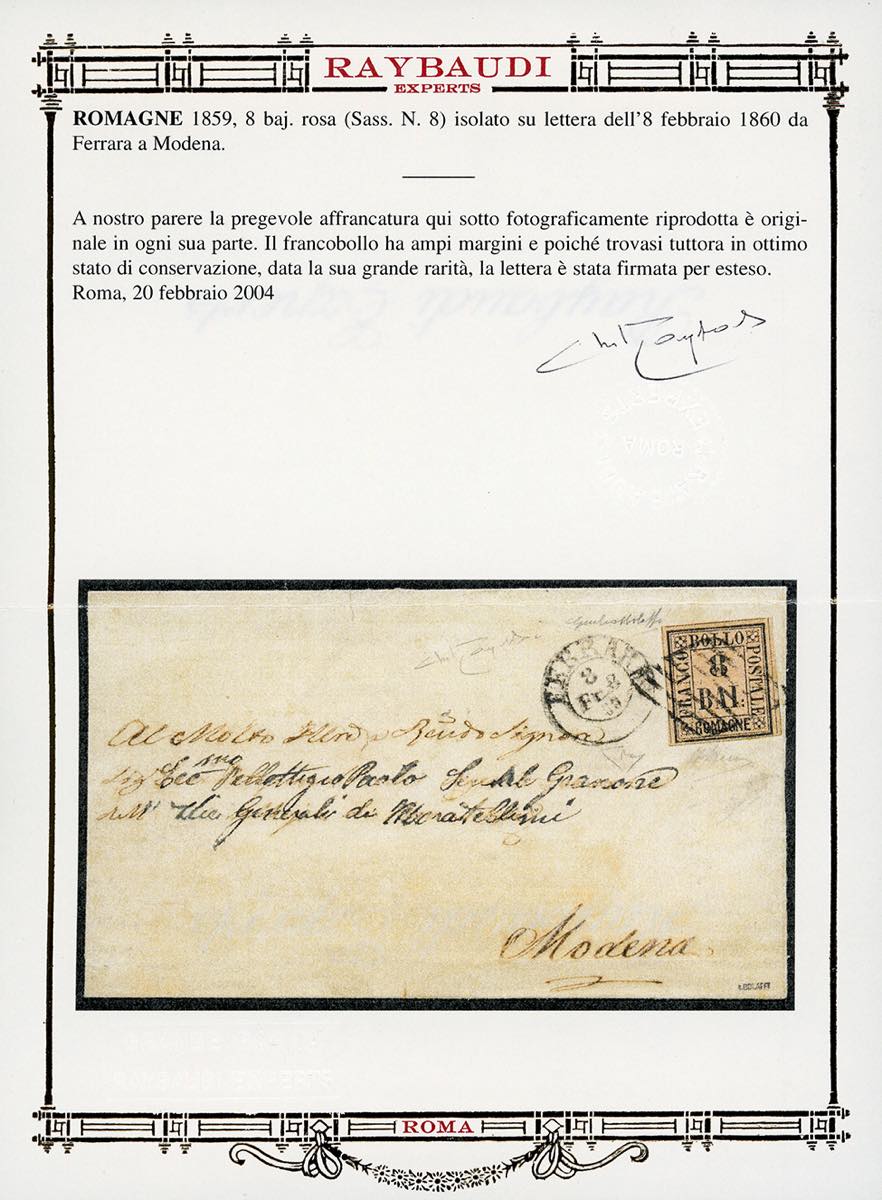 RAYBAUDI
EXPERTS
ROMAGNE 1859, 8 baj. rosa (Sass. N. 8) isolato su lettera dell'8 febbraio 1860 da
Ferrara a Modena.
A nostro parere la pregevole affrancatura qui sotto fotograficamente riprodotta è origi-
nale in ogni sua parte. Il francobollo ha ampi margini e poiché trovasi tuttora in ottimo
stato di conservazione, data la sua grande rarità, la lettera è stata firmata per esteso.
Roma, 20 febbraio 2004
EXPERTS
ROMA
FERRARA
8
FE
BOLLO
FRANCO
POSTALE
8
BAJ:
ROMAGNE
Al Molto
Paolo
Generali di
Modena
ROMA